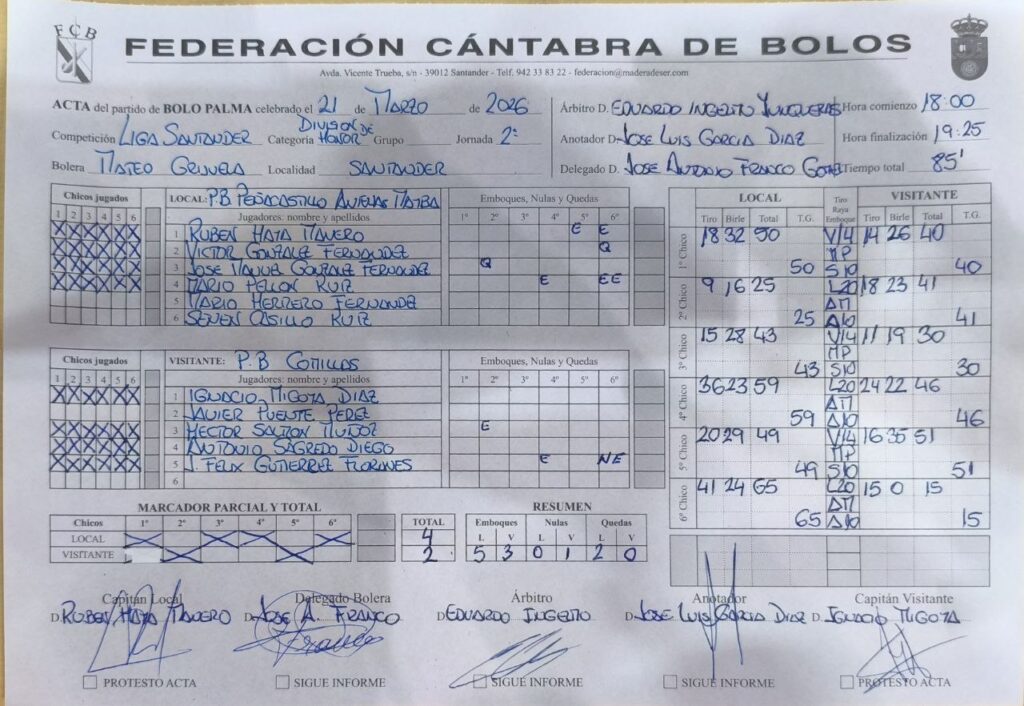 FCB
FEDERACIÓN CÁNTABRA DE BOLOS
Avda. Vicente Trueba, s/n - 39012 Santander - Telf. 942 33 83 22 - federacion@maderadeser.com
ACTA del partido de BOLO PALMA celebrado el 21 de MARZO de 2026
Competición LIGA SANTANDER Categoría DIVISION DE HONOR Grupo Jornada 2ª
Bolera MATEO GRIJUELA Localidad SANTANDER
Árbitro D. EDUARDO INGELITO JUNQUERAS Hora comienzo 18:00
Anotador D. JOSE LUIS GARCIA DIAZ Hora finalización 19:25
Delegado D. JOSE ANTONIO FRANCO Tiempo total 85'
Chicos jugados LOCAL: P.B PEÑACASTILLO ANTENAS MATBA Emboques, Nulas y Quedas
1 2 3 4 5 6 Jugadores: nombre y apellidos 1º 2º 3º 4º 5º 6º
X X X X X X 1 RUBEN HAYA MAVERO E E
X X X X X X 2 VICTOR GONZALEZ FERNANDEZ Q
X X X X X X 3 JOSE MANUEL GONZALEZ FERNANDEZ Q
X X X X X X 4 MARIO PELLON RUIZ E EE
5 MARIO HERRERO FERNANDEZ
6 SENEN CASILLO RUIZ
Chicos jugados VISITANTE: P.B COMILLAS Emboques, Nulas y Quedas
1 2 3 4 5 6 Jugadores: nombre y apellidos 1º 2º 3º 4º 5º 6º
X X X X X X 1 IGNACIO MIGOYA DIAZ
2 JAVIER PUENTE PEREZ
X X X X X X 3 HECTOR SALMON MUÑOZ E
X X X X X X 4 ANTONIO SAGREDO DIEGO
X X X X X X 5 J. FELIX GUTIERREZ FLORANES E NE
6
LOCAL Tiro Raya Emboque VISITANTE
Tiro Birle Total T.G. Tiro Birle Total T.G.
1º Chico 18 32 50 V/4 14 26 40
MP
50 S10 40
2º Chico 9 16 25 L20 18 23 41
AM
25 A10 41
3º Chico 15 28 43 V/4 11 19 30
MP
43 S10 30
4º Chico 36 23 59 L20 24 22 46
AM
59 A10 46
5º Chico 20 29 49 V/4 16 35 51
MP
49 S10 51
6º Chico 41 24 65 L20 15 0 15
AM
65 A10 15
MARCADOR PARCIAL Y TOTAL
Chicos 1º 2º 3º 4º 5º 6º TOTAL
LOCAL X X X X 4
VISITANTE X X 2
RESUMEN
Emboques Nulas Quedas
L V L V L V
5 3 0 1 2 0
Capitán Local Delegado Bolera Árbitro Anotador Capitán Visitante
D. RUBEN HAYA MAVERO D. JOSE A. FRANCO D. EDUARDO INGELITO D. JOSE LUIS GARCIA DIAZ D. IGNACIO MIGOYA
PROTESTO ACTA SIGUE INFORME SIGUE INFORME SIGUE INFORME PROTESTO ACTA